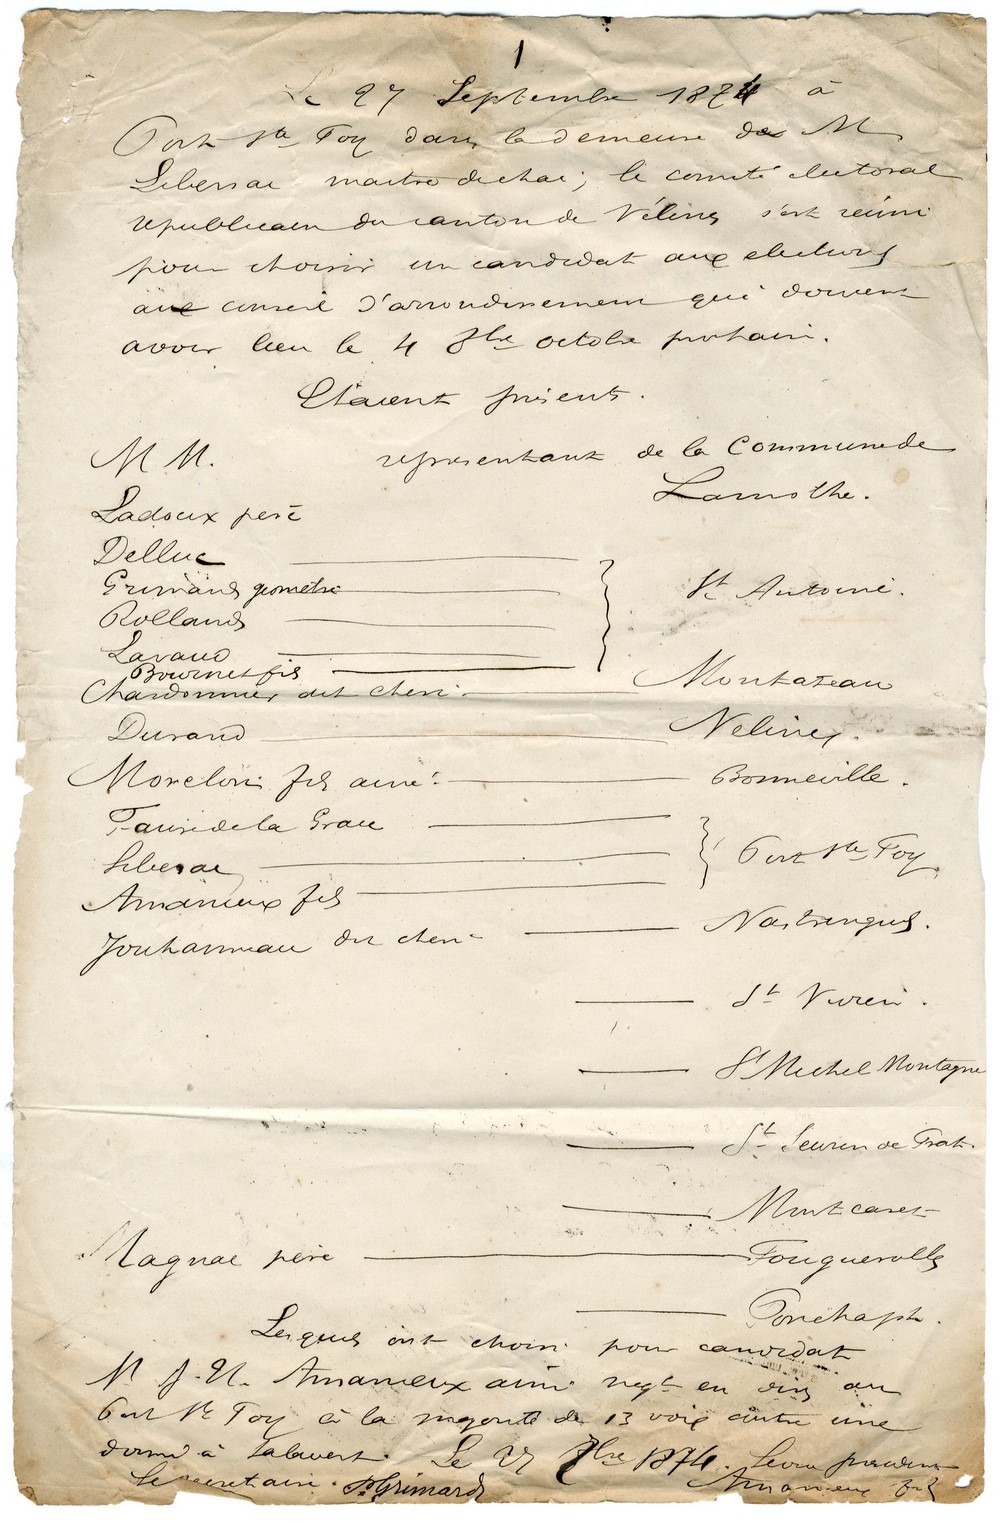 1
Le 27 Septembre 1874 à
Port Ste Foy dans la demeure de M
Libersac maitre de chai; le comité electoral
republicain du canton de Vélines s'est réuni
pour choisir un candidat aux elections
au conseil d'arrondissement qui doivent
avoir lieu le 4 8bre octobre prochain.
Etaient présents.
M M. representant de la Commune de
Lamothe.
Ladoux père
Delluc
Grimard geometre
St Antoine.
Rolland
Lavaud
Bournet fils
Chardonnier dit cheri Montazeau
Durand Velines.
Morelon fils ainé Bonneville.
Faure de la Grace
Libersac Port Ste Foy
Amanieux fils
Jouhanneau dit cheri Nastringues.
St Vivien.
St Michel Montagne
St Seurin de Prat.
Montcaret
Magnac père Fougueroles
Ponchapt.
Lesquels ont choisi pour candidat
M J. Amanieux ainé negt en vins au
Port Ste Foy à la majorité de 13 voix contre une
donné à Labavert. Le 27 7bre 1874. Le president
Le secretaire. Grimard Amanieux fils